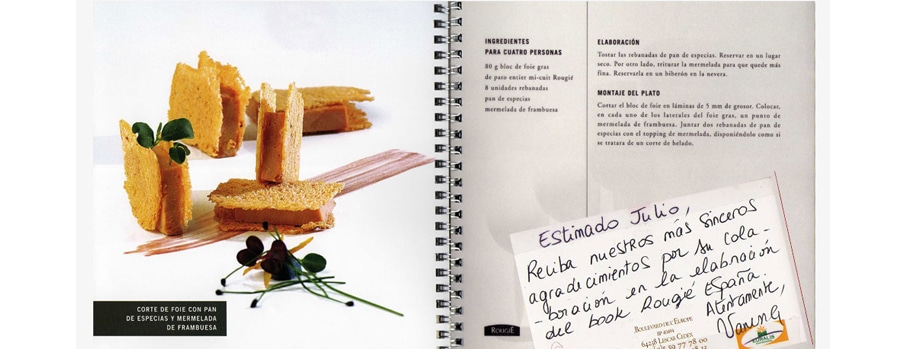 CORTE DE FOIE CON PAN
DE ESPECIAS Y MERMELADA
DE FRAMBUESA
INGREDIENTES
PARA CUATRO PERSONAS
80 g bloc de foie gras
de pato entier mi-cuit Rougié
8 unidades rebanadas
pan de especias
mermelada de frambuesa
ELABORACIÓN
Tostar las rebanadas de pan de especias. Reservar en un lugar
seco. Por otro lado, triturar la mermelada para que quede más
fina. Reservarla en un biberón en la nevera.
MONTAJE DEL PLATO
Cortar el bloc de foie en láminas de 5 mm de grosor. Colocar,
en cada uno de los laterales del foie gras, un punto de
mermelada de frambuesa. Juntar dos rebanadas de pan de
especias con el topping de mermelada, disponiéndolo como si
se tratara de un corte de helado.
Estimado Julio,
Reciba nuestros más sinceros
agradecimientos por su cola-
-boración en la elaboración
del book Rougié España.
Atentamente,
ROUGIÉ
BOULEVARD DE L'EUROPE
64238 LESCAR CEDEX
59 77 78 00